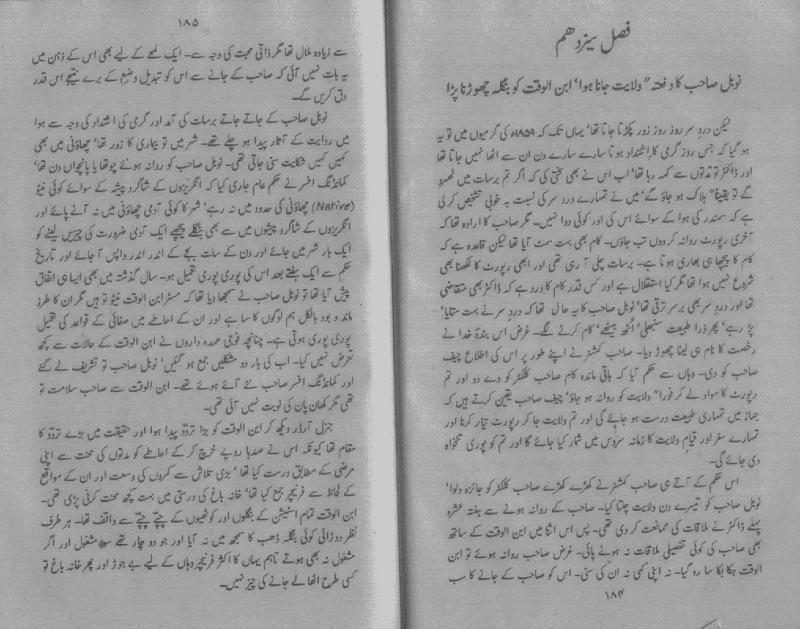 فصل سیزدھم
نوبل صاحب کا دفعتہ "ولایت جانا ہوا' ابن الوقت کو بنگلہ چھوڑنا پڑا
لیکن دردِ سر روز روز زور پکڑتا جاتا تھا' یہاں تک کہ ۱۸۵۹ء کی گرمیوں میں تو یہ
ہو گیا کہ جس روز گرمی کا اشتداد ہوتا سارے سارے دن ان سے اٹھا نہیں جاتا تھا
اور ڈاکٹر تو مدتوں سے کہہ رہا تھا' اب اس نے بھی سختی کی کہ اگر تم برسات میں ٹھہرو
گے تو یقیناً ہلاک ہو جاؤ گے' میں نے تمہارے دردِ سر کی نسبت بہ خوبی تشخیص کر لی
ہے کہ سمندر کی ہوا کے سوائے اس کی اور کوئی دوا نہیں۔ مگر صاحب کا ارادہ تھا کہ
آخری رپورٹ روانہ کر دوں تب جاؤں۔ کام بھی بہت سمٹ آیا تھا لیکن قاعدہ ہے کہ
کام کا پیچھا ہی بھاری ہوتا ہے۔ برسات چلی آ رہی تھی اور ابھی رپورٹ کا لکھنا بھی
شروع نہیں ہوا تھا مگر کیا استقلال ہے اور کس قدر کام کا درد ہے کہ ڈاکٹر بھی متقاضی
تھا اور دردِ سر بھی بر سرِ ترقی تھا' نوبل صاحب کا یہ حال تھا کہ دردِ سر نے بہت ستایا'
پڑ رہے' پھر ذرا طبیعت سنبھلی' اُٹھ بیٹھے' کام کرنے لگے۔ غرض اس بندۂ خدا نے
رخصت کا نام ہی لینا چھوڑ دیا۔ صاحب کمشنر نے اپنے طور پر اس کی اطلاع چیف
صاحب کو دی۔ وہاں سے حکم آیا کہ باقی ماندہ کام صاحب کلکٹر کو دے دو اور تم
رپورٹ کا مواد لے کر فوراً "ولایت کو روانہ ہو جاؤ' چیف صاحب یقین کرتے ہیں کہ
جہاز میں تمہاری طبیعت درست ہو جائے گی اور تم ولایت جا کر رپورٹ تیار کرنا اور
تمہارے سفر اور قیامِ ولایت کا زمانہ سروس میں شمار کیا جائے گا اور تم کو پوری تنخواہ
دی جائے گی۔
اس حکم کے آتے ہی صاحب کمشنر نے کھڑے کھڑے صاحب کلکٹر کو جائزہ دلوا'
نوبل صاحب کو تیسرے دن ولایت چلتا کیا۔ صاحب کے روانہ ہونے سے ہفتہ عشرہ
پہلے ڈاکٹر نے ملاقات کی ممانعت کر دی تھی۔ پس اس اثنا میں ابن الوقت کے ساتھ
بھی صاحب کی کوئی تفصیلی ملاقات نہ ہونے پائی۔ غرض صاحب روانہ ہوئے تو ابن
الوقت ہکا بکا سا رہ گیا۔ نہ اپنی کہی نہ ان کی سنی۔ اس کو صاحب کے جانے کا سب
۱۸۴
۱۸۵
سے زیادہ ملال تھا مگر ذاتی محبت کی وجہ سے۔ ایک لمحے کے لیے بھی اس کے ذہن میں
یہ بات نہیں آئی کہ صاحب کے جانے سے اس کو تبدیلِ وضع کے برے نتیجے اس قدر
دق کریں گے۔
نوبل صاحب کے جاتے جاتے برسات کی آمد اور گرمی کی اشتداد کی وجہ سے ہوا
میں ردایت کے آثار پیدا ہو چلے تھے۔ شہر میں تو بیماری کا زور تھا' چھاؤنی میں بھی
کہیں کہیں شکایت سنی جاتی تھی۔ نوبل صاحب کو روانہ ہوئے چوتھا یا پانچواں دن تھا'
کمانڈنگ افسر نے حکم عام جاری کیا کہ انگریزوں کے شاگرد پیشہ کے سوائے کوئی نیٹو
(Native) چھاؤنی کی حدود میں نہ رہے' شہر کا کوئی آدمی چھاؤنی میں نہ آنے پائے اور
انگریزوں کے شاگرد پیشوں میں سے بھی بنگلے پیچھے ایک آدمی ضرورت کی چیزیں لینے کو
ایک بار شہر میں جائے اور دن کے سات بجے کے اندر اندر واپس آ جائے اور تاریخ
حکم سے ایک ہفتے بعد اس کی پوری پوری تعمیل ہو۔ سال گذشتہ میں بھی ایسا ہی اتفاق
پیش آیا تھا تو نوبل صاحب نے سمجھا دیا تھا کہ مسٹر ابن الوقت نیٹو تو ہیں مگر ان کا طرز
ماند و بود بالکل ہم لوگوں کا سا ہے اور ان کے احاطے میں صفائی کے قواعد کی تعمیل
پوری پوری ہوتی ہے۔ چنانچہ فوجی عہدہ داروں نے ابن الوقت کے حالات سے کچھ
تعرض نہیں کیا۔ اب کی بار دو مشکلیں جمع ہو گئیں' نوبل صاحب تو تشریف لے گئے
اور کمانڈنگ افسر صاحب نئے آئے ہوئے تھے۔ ابن الوقت سے صاحب سلامت تو
تھی مگر کھان پان کی نوبت نہیں آئی تھی۔
جنرل آرڈر دیکھ کر ابن الوقت کو بڑا تردّد پیدا ہوا اور حقیقت میں بڑے تردّد کا
مقام تھا کیونکہ اس نے صدہا روپے خرچ کر کے احاطے کو مدتوں کی محنت سے اپنی
مرضی کے مطابق درست کیا تھا' بڑی تلاش سے کمروں کی وسعت اور ان کے مواقع
کے لحاظ سے فرنیچر جمع کیا تھا' خانہ باغ کی درستی میں بہت کچھ محنت کرنی پڑی تھی۔
ابن الوقت تمام اسٹیشن کے بنگلوں اور کوٹھیوں کے چپّے چپّے سے واقف تھا۔ ہر طرف
نظر دوڑائی کوئی بنگلہ ڈھب کا سمجھ میں نہ آیا اور جو دو چار تھے مشغول اور اگر
مشغول نہ بھی ہوتے تاہم یہاں کا اکثر فرنیچر وہاں کے لیے بے جوڑ اور پھر خانہ باغ تو
کسی طرح اٹھا لے جانے کی چیز نہیں۔